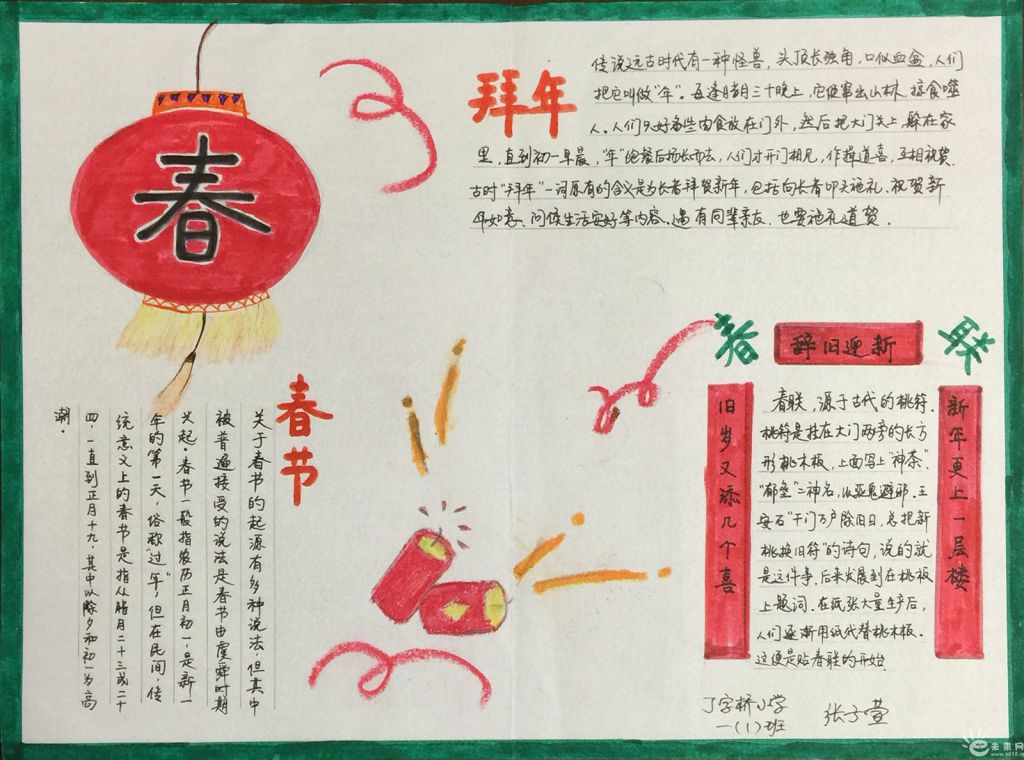 春
拜年
传说远古时代有一种怪兽，头顶长独角，口似血盆，人们
把它叫做“年”。每逢腊月三十晚上，它便窜出山林，掠食噬
人。人们只好备些肉食放在门外，然后把大门关上，躲在家
里，直到初一早晨，“年”饱餐后扬长而去，人们才开门相见，作揖道喜，互相祝贺。
古时“拜年”一词原有的含义是为长者拜贺新年，包括向长者叩头施礼、祝贺新
年如意、问候生活安好等内容。遇有同辈亲友，也要施礼道贺．
春节
关于春节的起源有多种说法，但其中
被普遍接受的说法是春节由虞舜时期
兴起．春节一般指农历正月初一，是新一
年的第一天，俗称“过年”，但在民间，传
统意义上的春节是指从腊月二十三或二十
四，一直到正月十九，其中以除夕和初一为高
潮．
春联
辞旧迎新
旧岁又添几个喜
新年更上一层楼
春联，源于古代的桃符．
桃符是挂在大门两旁的长方
形桃木板，上面写上“神荼”
“郁垒”二神名，以驱鬼避邪．王
安石“千门万户除旧日，总把新
桃换旧符”的诗句，说的就
是这件事．后来发展到在桃板
上题词．在纸张大量生产后，
人们逐渐用纸代替桃木板．
这便是贴春联的开始．
丁字桥小学
一（1）班
张子萱
未来网